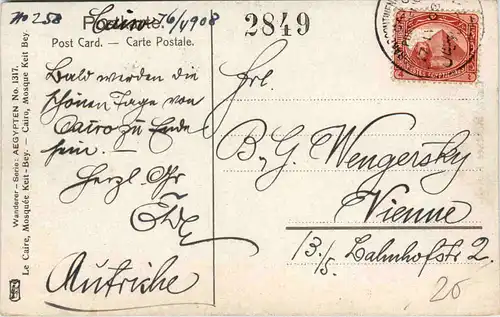 No 258
Cairo 16/I 1908
2849
Post Card. — Carte Postale.
Bald werden die
schönen Tage von
Cairo zu Ende
sein. —
Herzl. Gr
Frl.
B. G. Wengersky
Vienne
13/5. Bahnhofstr 2.
Autriche
20
Wanderer-Serie: AEGYPTEN No. 1317.
Le Caire, Mosquée Keit-Bey. Cairo, Mosque Keit Bey.